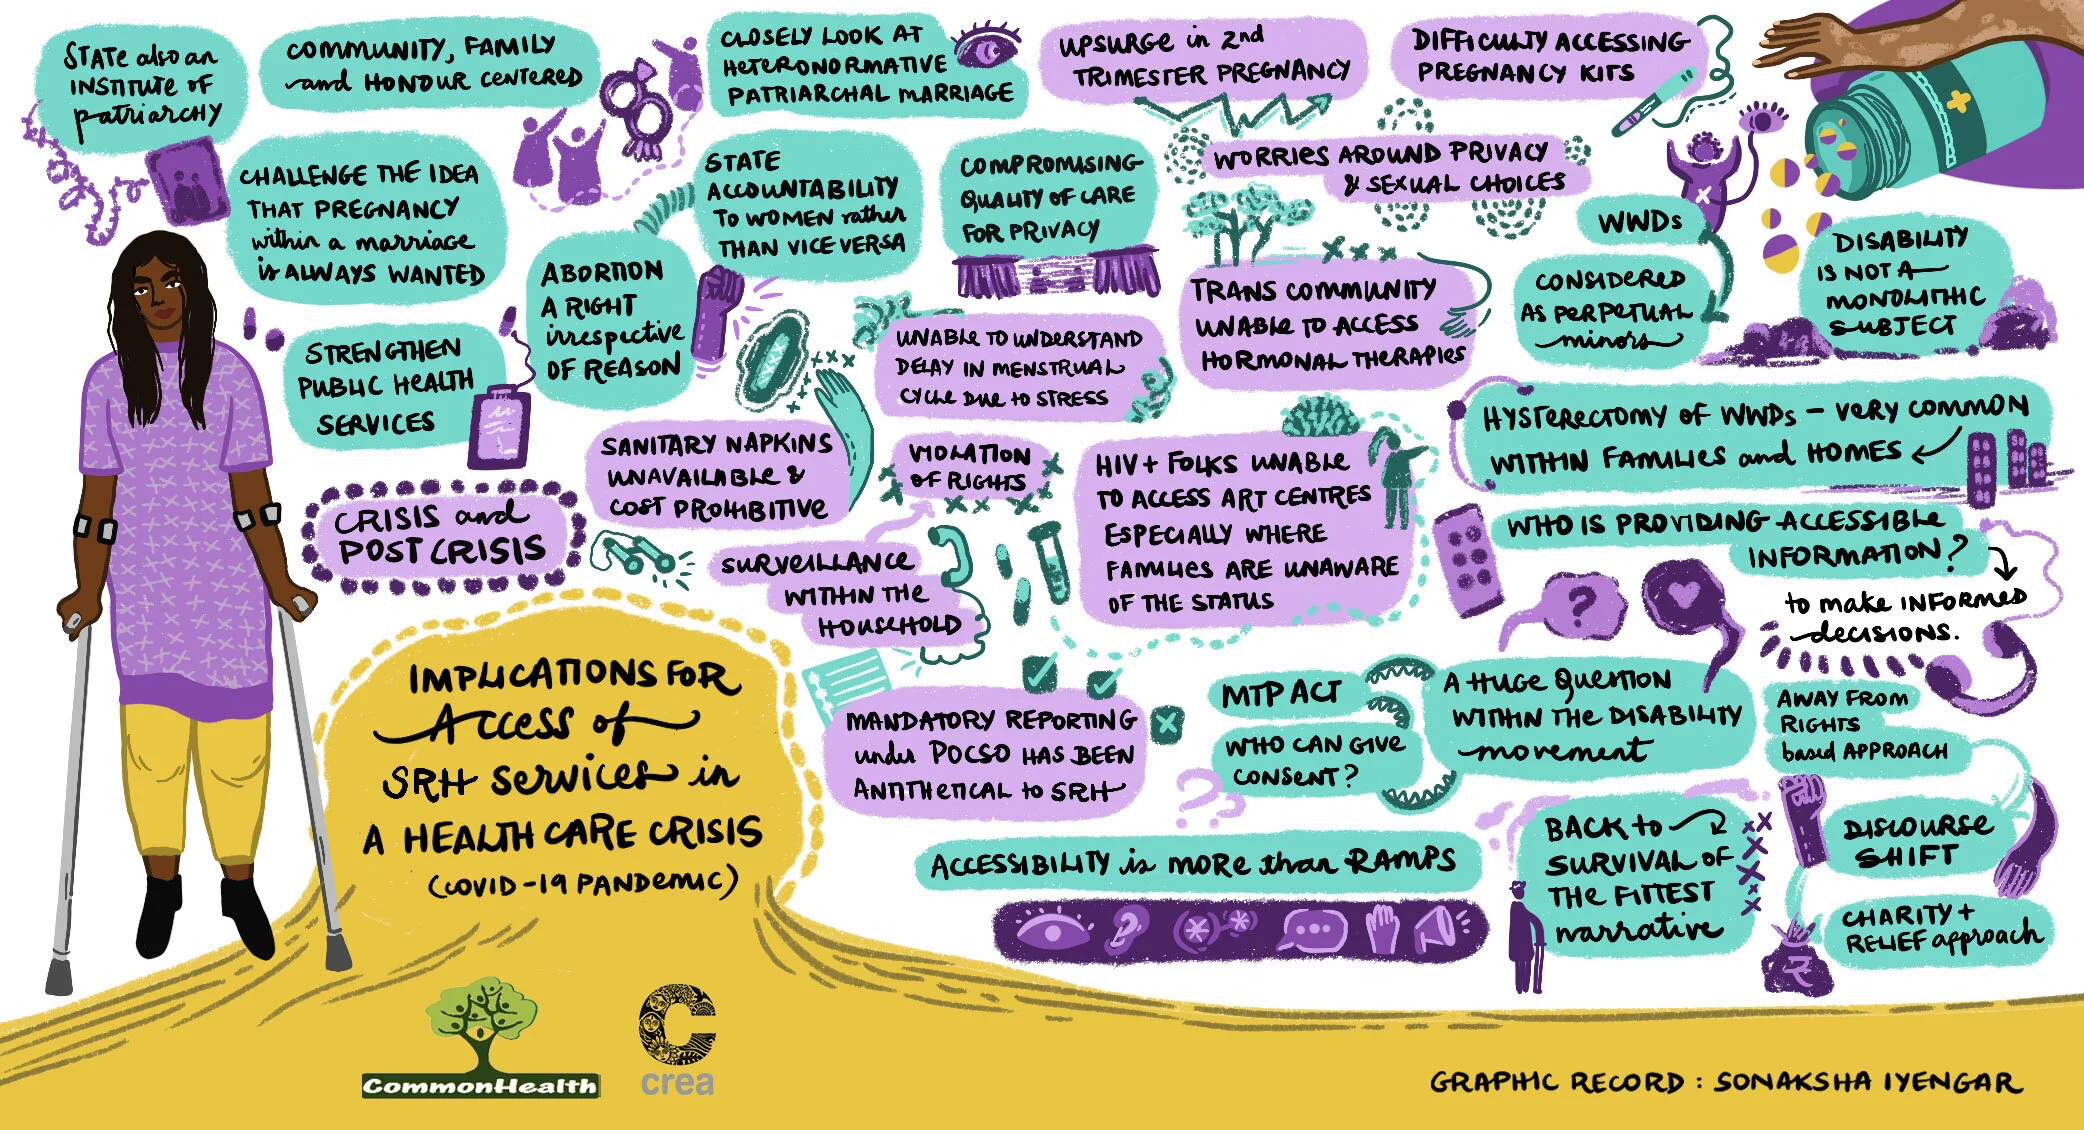 STATE also an
INSTITUTE OF
patriarchy
COMMUNITY, FAMILY
and HONOUR CENTERED
CLOSELY LOOK AT
HETERONORMATIVE
PATRIARCHAL MARRIAGE
UPSURGE in 2nd
TRIMESTER PREGNANCY
DIFFICULTY ACCESSING
PREGNANCY KITS
CHALLENGE THE IDEA
THAT PREGNANCY
within a marriage
is ALWAYS WANTED
STATE
ACCOUNTABILITY
TO WOMEN rather
THAN VICE VERSA
COMPROMISING
QUALITY OF CARE
FOR PRIVACY
WORRIES AROUND PRIVACY
& SEXUAL CHOICES
WWDs
CONSIDERED
AS PERPETUAL
minors
DISABILITY
IS NOT A
MONOLITHIC
SUBJECT
ABORTION
A RIGHT
irrespective
OF REASON
STRENGTHEN
PUBLIC HEALTH
SERVICES
UNABLE TO UNDERSTAND
DELAY IN MENSTRUAL
CYCLE DUE to STRESS
TRANS COMMUNITY
UNABLE TO ACCESS
HORMONAL THERAPIES
HYSTERECTOMY OF WWDs – VERY COMMON
WITHIN FAMILIES and HOMES
SANITARY NAPKINS
UNAVAILABLE &
COST PROHIBITIVE
VIOLATION
OF RIGHTS
HIV+ FOLKS UNABLE
TO ACCESS ART CENTRES
ESPECIALLY WHERE
FAMILIES ARE UNAWARE
OF THE STATUS
WHO IS PROVIDING ACCESSIBLE
INFORMATION?
to make INFORMED
decisions.
CRISIS and
POST CRISIS
SURVEILLANCE
WITHIN THE
HOUSEHOLD
IMPLICATIONS FOR
Access of
SRH services in
A HEALTH CARE CRISIS
(COVID-19 PANDEMIC)
MANDATORY REPORTING
under POCSO HAS BEEN
ANTITHETICAL to SRH
MTP ACT
WHO CAN GIVE
CONSENT?
A HUGE QUESTION
WITHIN THE DISABILITY
movement
AWAY FROM
RIGHTS
based APPROACH
ACCESSIBILITY is more than RAMPS
BACK to
SURVIVAL OF
THE FITTEST
narrative
DISCOURSE
SHIFT
CHARITY +
RELIEF approach
₹
CommonHealth
crea
GRAPHIC RECORD : SONAKSHA IYENGAR